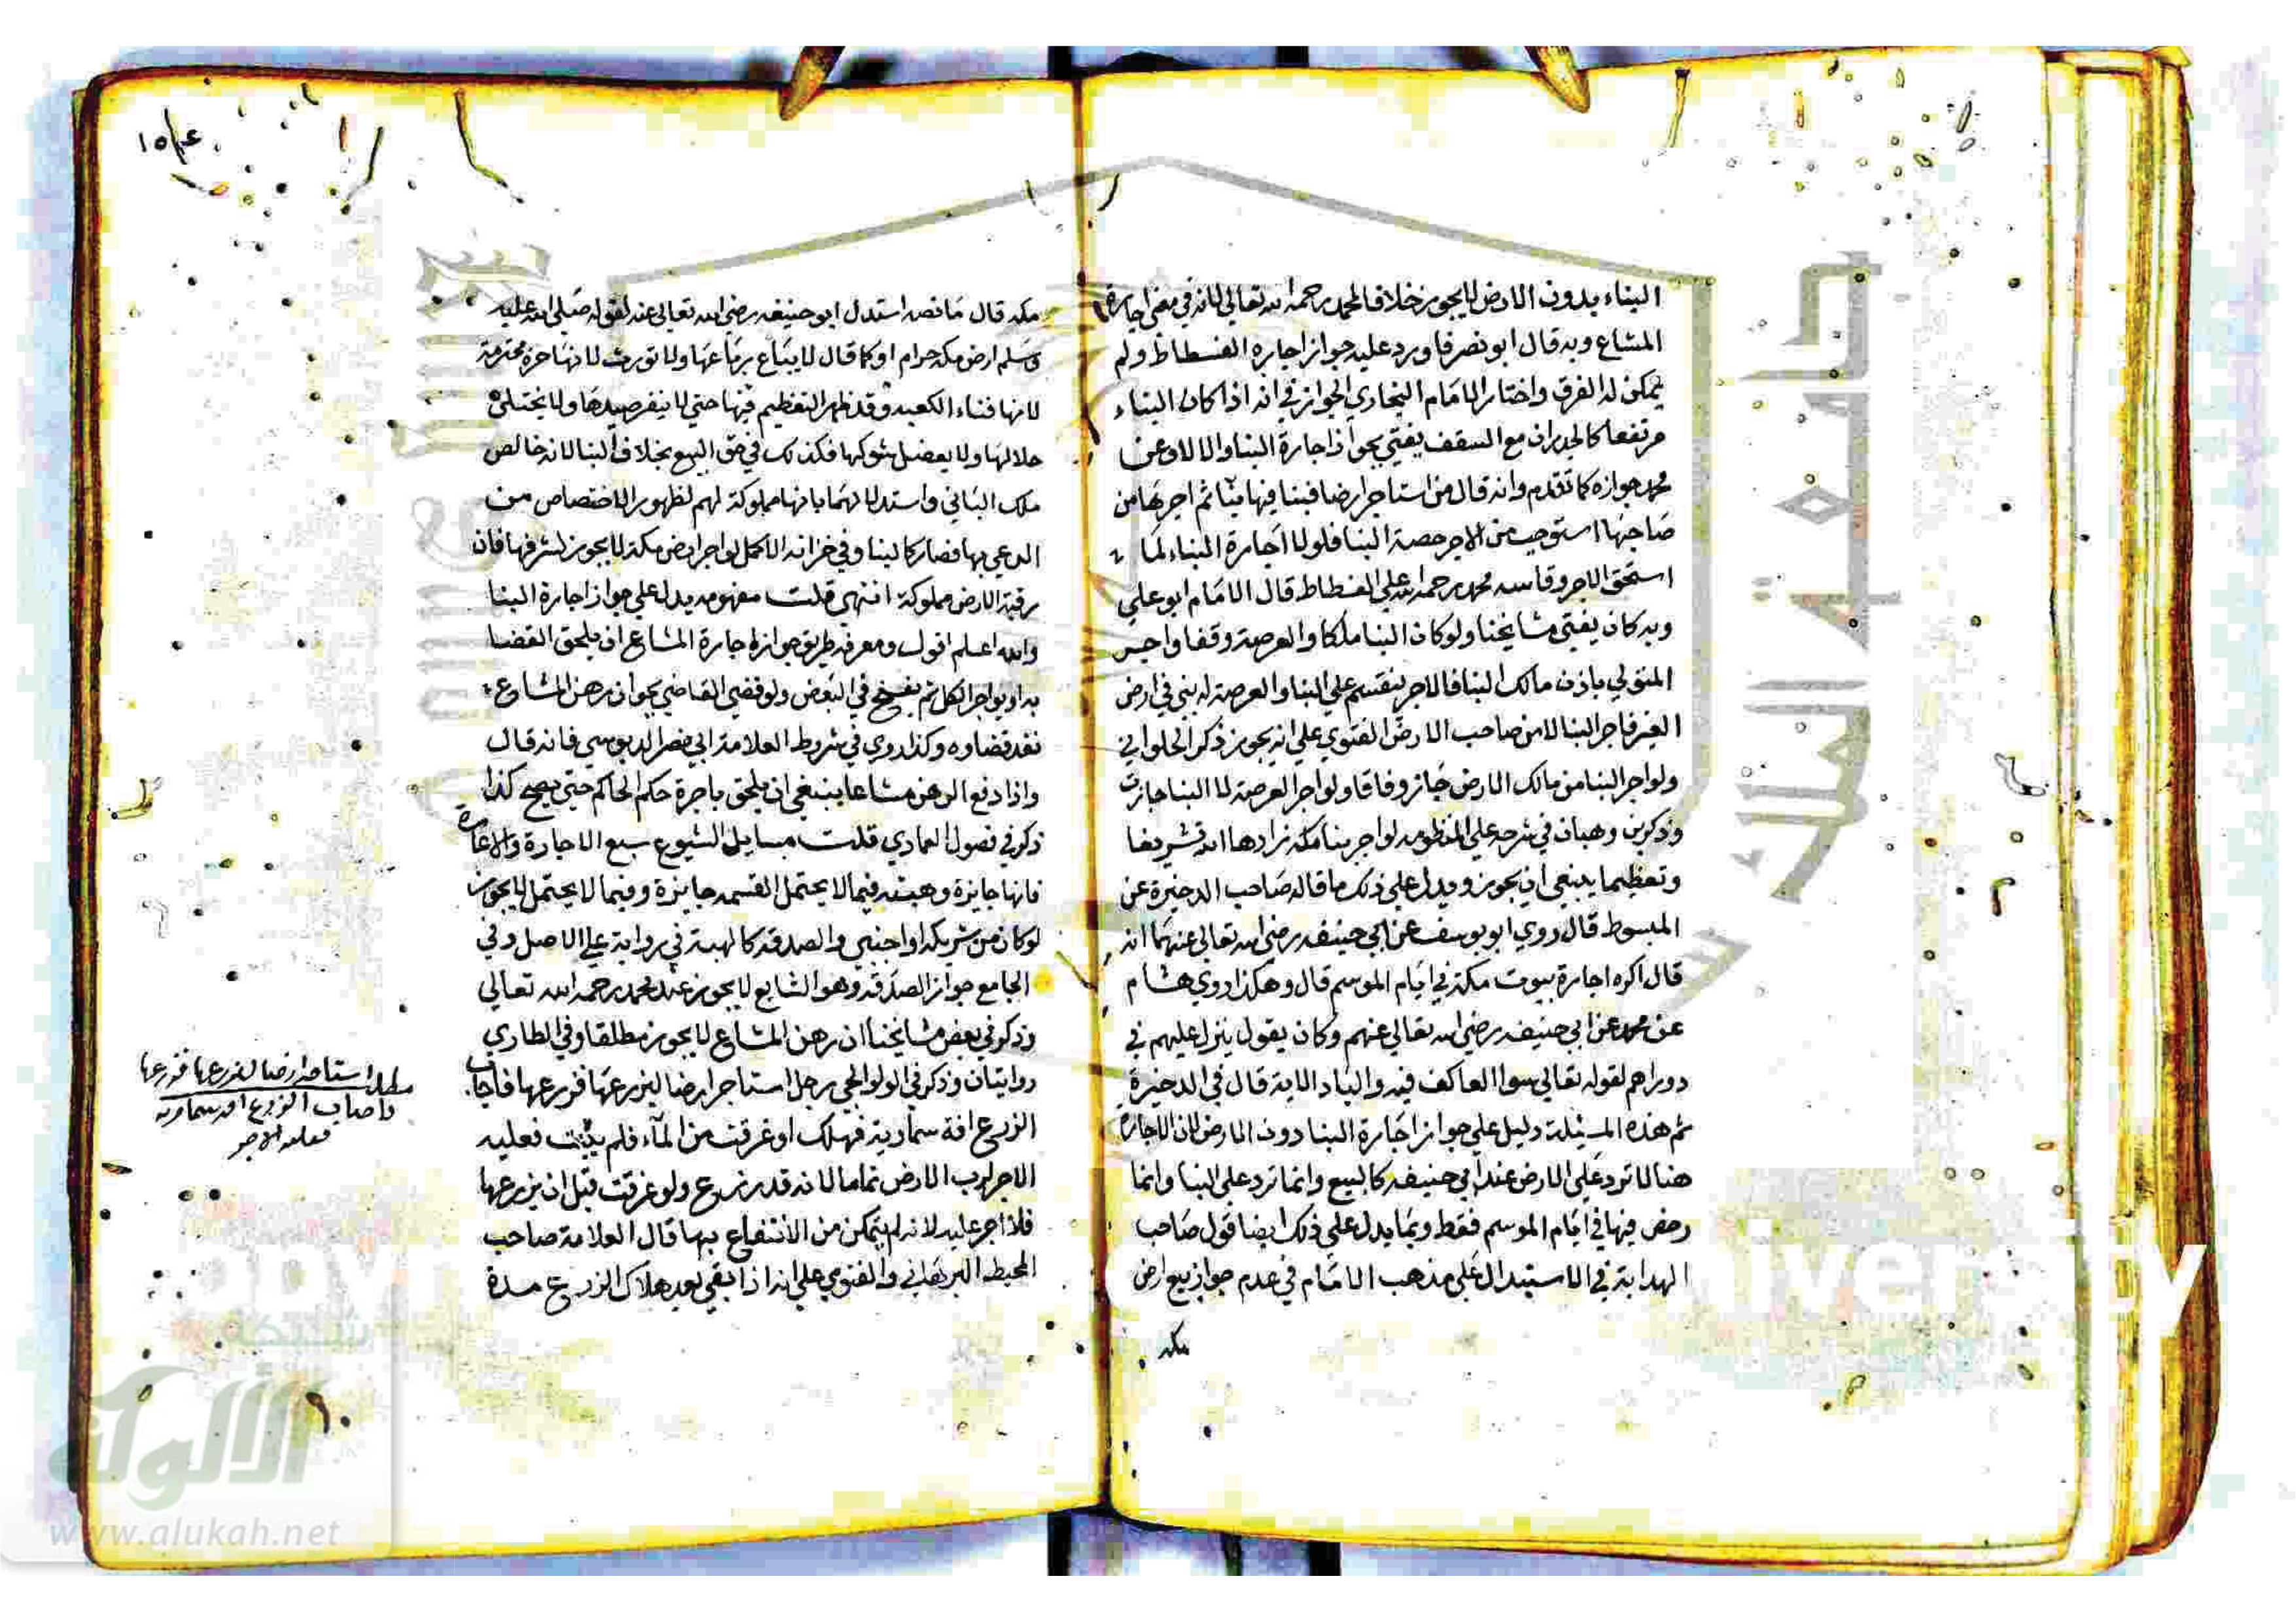 البناء بدون الارض لا يجوز خلافا لمحمد رحمه الله تعالى لانه في معنى اجارة
المشاع وبه قال ابو نصر فاورد عليه جواز اجارة الفسطاط ولم
يمكن له الفرق واختار الامام البخاري الجواز في انه اذا كان البناء
مرتفعا كالجدران مع السقف يفتي بجواز اجارة البنا والا لا وعن
محمد جوازه كما تقدم وانه قال من استاجر ارضا فبنا فيها بيتا ثم اجرها من
صاحبها استوجب من الاجر حصة البنا فلولا اجارة البناء لما
استحق الاجر وقاسه محمد رحمه الله على الفسطاط قال الامام ابو علي
وبه كان يفتي مشايخنا ولو كان البنا ملكا والعرصة وقفا واجر
المتولي باذن مالك البنا فالاجر ينقسم على البنا والعرصة له بنى في ارض
الغير فاجر البنا لا من صاحب الارض الفتوى على انه يجوز ذكر الحلواني
ولو اجر البنا من مالك الارض جاز وفاقا ولو اجر العرصة لا البنا جازت
وذكر بن وهبان في شرحه على المنظومه لو اجر بنا مكه زادها الله تشريفا
وتعظيما ينبغي ان يجوز ويدل على ذلك ما قاله صاحب الذخيرة عن
المبسوط قال روى ابو يوسف عن ابي حنيفه رضي الله تعالى عنهما انه
قال اكره اجارة بيوت مكة في ايام الموسم قال وهكذا روى هشام
عن محمد عن ابي حنيفه رضي الله تعالى عنهم وكان يقول ينزل عليهم في
دورهم لقوله تعالى سوا العاكف فيه والباد الاية قال في الذخيرة
ثم هذه المسئلة دليل على جواز اجارة البنا دون الارض لان الاجارة
هنا لا ترد على الارض عند ابي حنيفه كالبيع وانما ترد على البنا وانما
رخص فيها في ايام الموسم فقط ومما يدل على ذلك ايضا قول صاحب
الهداية في الاستدلال على مذهب الامام في عدم جواز بيع ارض
مكه
١٥٤
مكه قال ما نصه استدل ابو حنيفه رضي الله تعالى عنه لقوله صلى الله عليه
وسلم ارض مكه حرام او كما قال لا يباع رباعها ولا تورث لانها حرة محترمة
لانها فناء الكعبه وقد ظهر التعظيم فيها حتى لا ينفر صيدها ولا يختلى
خلالها ولا يعضد شوكها فكذلك في حق البيع بخلاف البنا لانه خالص
ملك الباني واستدلا لهما بانها مملوكة لهم لظهور الاختصاص من
الدعي بها فصار كالبنا وفي خزانة الاكمل لو اجر ارض مكة لا يجوز لشرفها فان
رقبة الارض مملوكة انتهى قلت مفهومه يدل على جواز اجارة البنا
والله اعلم اقول ومعرفه طريق جواز اجارة المشاع ان يلحق القضا
به او يواجر الكل ثم يفسخ في البعض ولو قضى القاضي بجوان رهن المشاع
نفد قضاوه وكذا روي في شروط العلامة ابي نصر الدبوسي فانه قال
واذا دفع الرهن مشاعا ينبغي ان يلحق باجرة حكم الحاكم حتى يصح كذا
ذكر في فصول العمادي قلت مسايل الشيوع سبع الاجارة والاعارة
فانها جايزة وهبته فيما لا يحتمل القسمه جايزة وفيما لا يحتمل لا يجوز
لو كان من شريكه او اجنبي والصدقه كالهبة في رواية على الاصل وفي
الجامع جواز الصدقه وهو الشايع لا يجوز عند محمد رحمه الله تعالى
وذكر في بعض مشايخنا ان رهن المشاع لا يجوز مطلقا وفي الطاري
روايتان وذكر في الولوالجي رجل استاجر ارضا ليزرعها فزرعها فاجاب
الزرع افة سماوية فهلك او غرقت من الماء فلم ينبت فعليه
الاجر لرب الارض تماما لانه قد زرع ولو غرقت قبل ان يزرعها
فلا اجر عليه لانه لم يتمكن من الانتفاع بها قال العلامة صاحب
المحيط البرهاني والفتوى على انه اذا بقي بعد هلاك الزرع مدة
مطلب استاجر ارضا ليزرعها فزرعها
واصاب الزرع افه سماويه
فعليه الاجر
شبكة
الألوكة
www.alukah.net